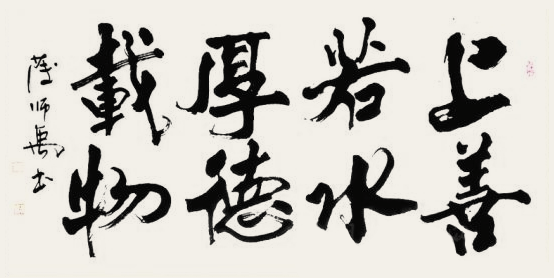 上善
若水
厚德
載物
師禹書